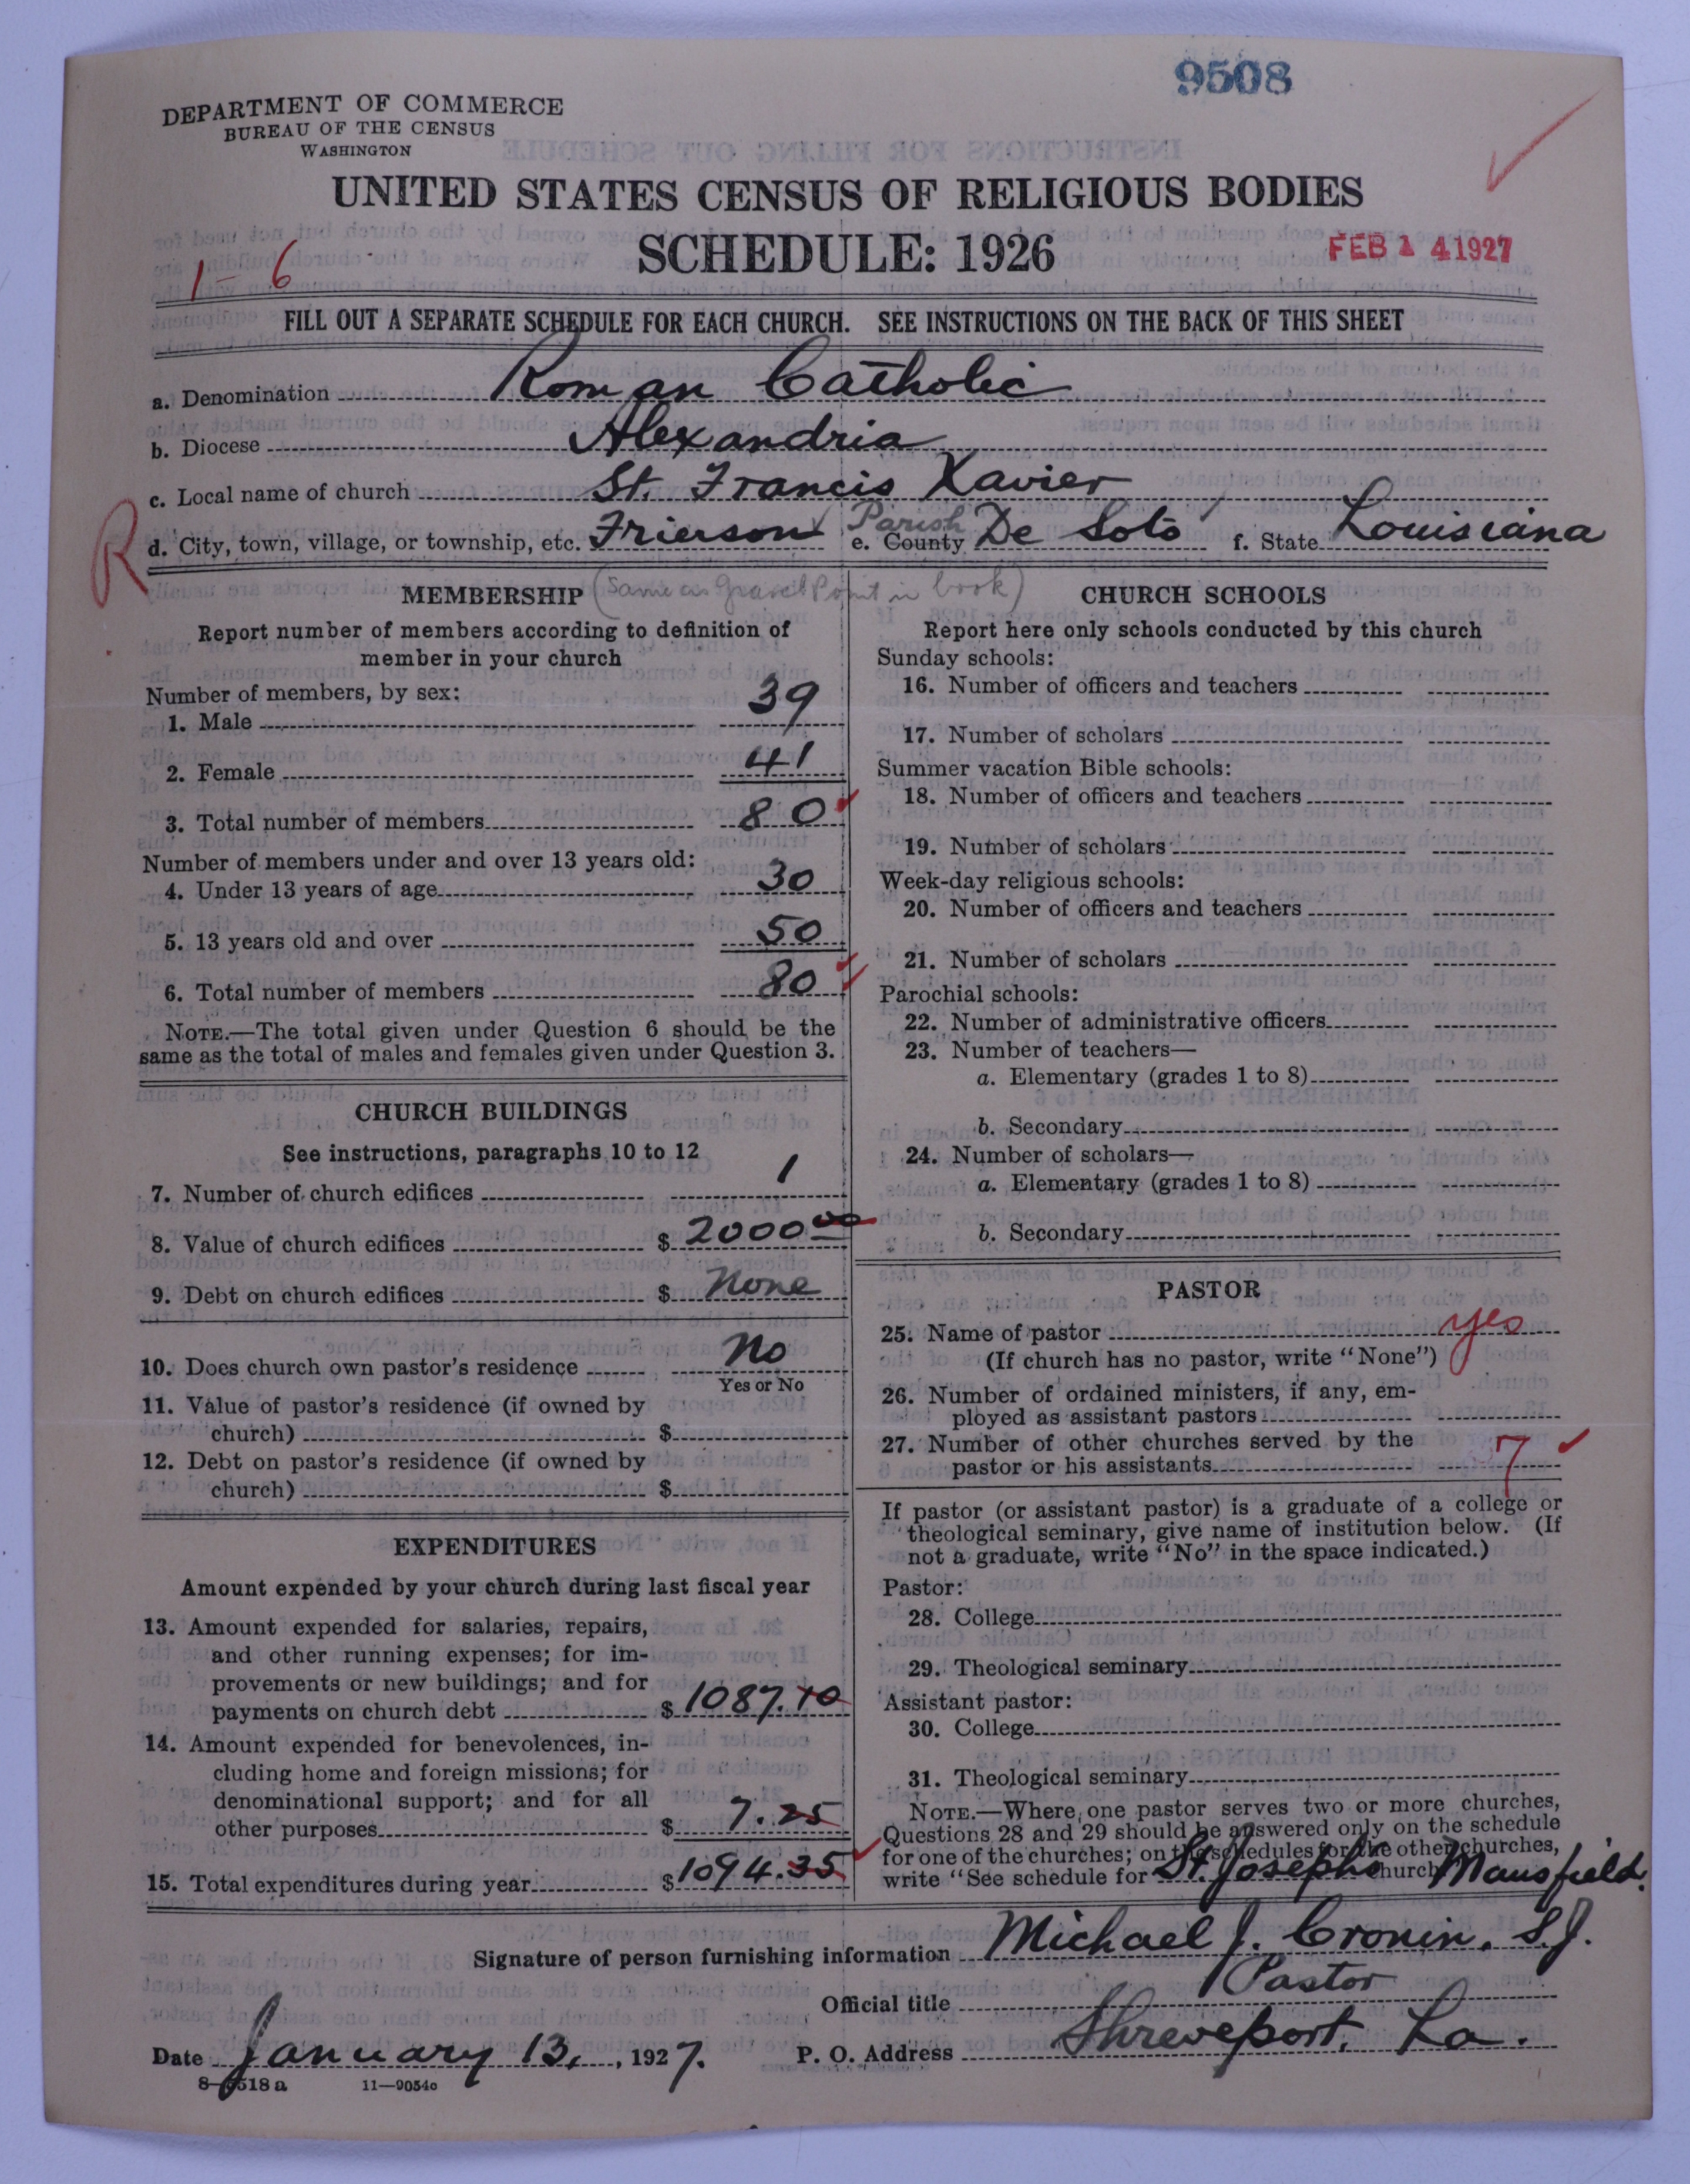 9508
DEPARTMENT OF COMMERCE
BUREAU OF THE CENSUS
WASHINGTON
UNITED STATES CENSUS OF RELIGIOUS BODIES
SCHEDULE: 1926
FEB 14 1927
1-6
FILL OUT A SEPARATE SCHEDULE FOR EACH CHURCH. SEE INSTRUCTIONS ON THE BACK OF THIS SHEET
a. Denomination Roman Catholic
b. Diocese Alexandria
c. Local name of church St. Francis Xavier
R
d. City, town, village, or township, etc. Frierson Parish e. County De Soto f. State Louisiana
(Same as Gravel Point in book)
MEMBERSHIP
Report number of members according to definition of
member in your church
Number of members, by sex:
1. Male 39
2. Female 41
3. Total number of members 80
Number of members under and over 13 years old:
4. Under 13 years of age 30
5. 13 years old and over 50
6. Total number of members 80
NOTE.—The total given under Question 6 should be the
same as the total of males and females given under Question 3.
CHURCH BUILDINGS
See instructions, paragraphs 10 to 12
7. Number of church edifices 1
8. Value of church edifices $ 2000 00
9. Debt on church edifices $ None
10. Does church own pastor's residence No
Yes or No
11. Value of pastor's residence (if owned by
church) $
12. Debt on pastor's residence (if owned by
church) $
EXPENDITURES
Amount expended by your church during last fiscal year
13. Amount expended for salaries, repairs,
and other running expenses; for im-
provements or new buildings; and for
payments on church debt $ 1087.10
14. Amount expended for benevolences, in-
cluding home and foreign missions; for
denominational support; and for all
other purposes $ 7.25
15. Total expenditures during year $ 1094.35
CHURCH SCHOOLS
Report here only schools conducted by this church
Sunday schools:
16. Number of officers and teachers
17. Number of scholars
Summer vacation Bible schools:
18. Number of officers and teachers
19. Number of scholars
Week-day religious schools:
20. Number of officers and teachers
21. Number of scholars
Parochial schools:
22. Number of administrative officers
23. Number of teachers—
a. Elementary (grades 1 to 8)
b. Secondary
24. Number of scholars—
a. Elementary (grades 1 to 8)
b. Secondary
PASTOR
25. Name of pastor yes
(If church has no pastor, write "None")
26. Number of ordained ministers, if any, em-
ployed as assistant pastors
27. Number of other churches served by the
pastor or his assistants 7
If pastor (or assistant pastor) is a graduate of a college or
theological seminary, give name of institution below. (If
not a graduate, write "No" in the space indicated.)
Pastor:
28. College
29. Theological seminary
Assistant pastor:
30. College
31. Theological seminary
NOTE.—Where one pastor serves two or more churches,
Questions 28 and 29 should be answered only on the schedule
for one of the churches; on the schedules for the other churches,
write "See schedule for St. Josephs Church Mansfield.
Signature of person furnishing information Michael J. Cronin, S.J.
Official title Pastor
Date January 13, 1927. P. O. Address Shreveport, La.
8-9518 a 11—9054c